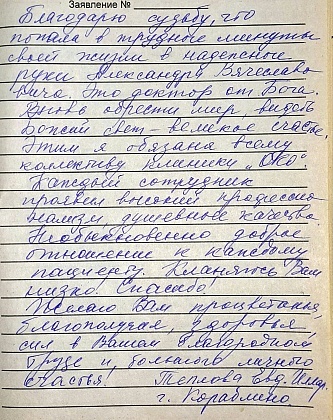 Заявление №
Благодарю судьбу, что
попала в трудные минуты
своей жизни в надежные
руки Александра Вячеславо-
вича. Это доктор от Бога.
Вновь обрести мир, видеть
Божий свет - великое счастье.
Этим я обязана всему
коллективу клиники "Око".
Каждый сотрудник
проявил высокий професcио-
нализм, душевные качества.
Необыкновенно доброе
отношение к каждому
пациенту. Кланяюсь Вам
низко. Спасибо!
Желаю Вам процветания,
благополучия, здоровья,
сил в Вашем благородном
труде и, большого личного
счастья! Теплова Евд.
г. Кораблино